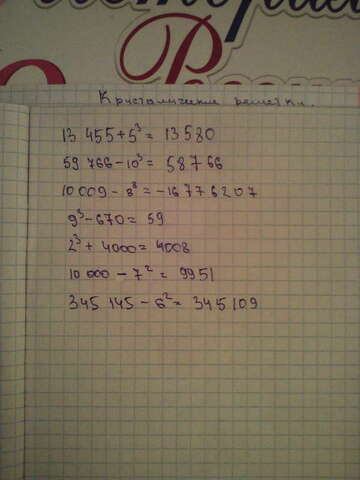 Кристалические решетки.
13 455 + 5³ = 13 580
59 766 - 10³ = 58 766
10 009 - 8⁸ = -16 776 207
9³ - 670 = 59
2³ + 4000 = 4008
10 000 - 7² = 9951
345 145 - 6² = 345 109